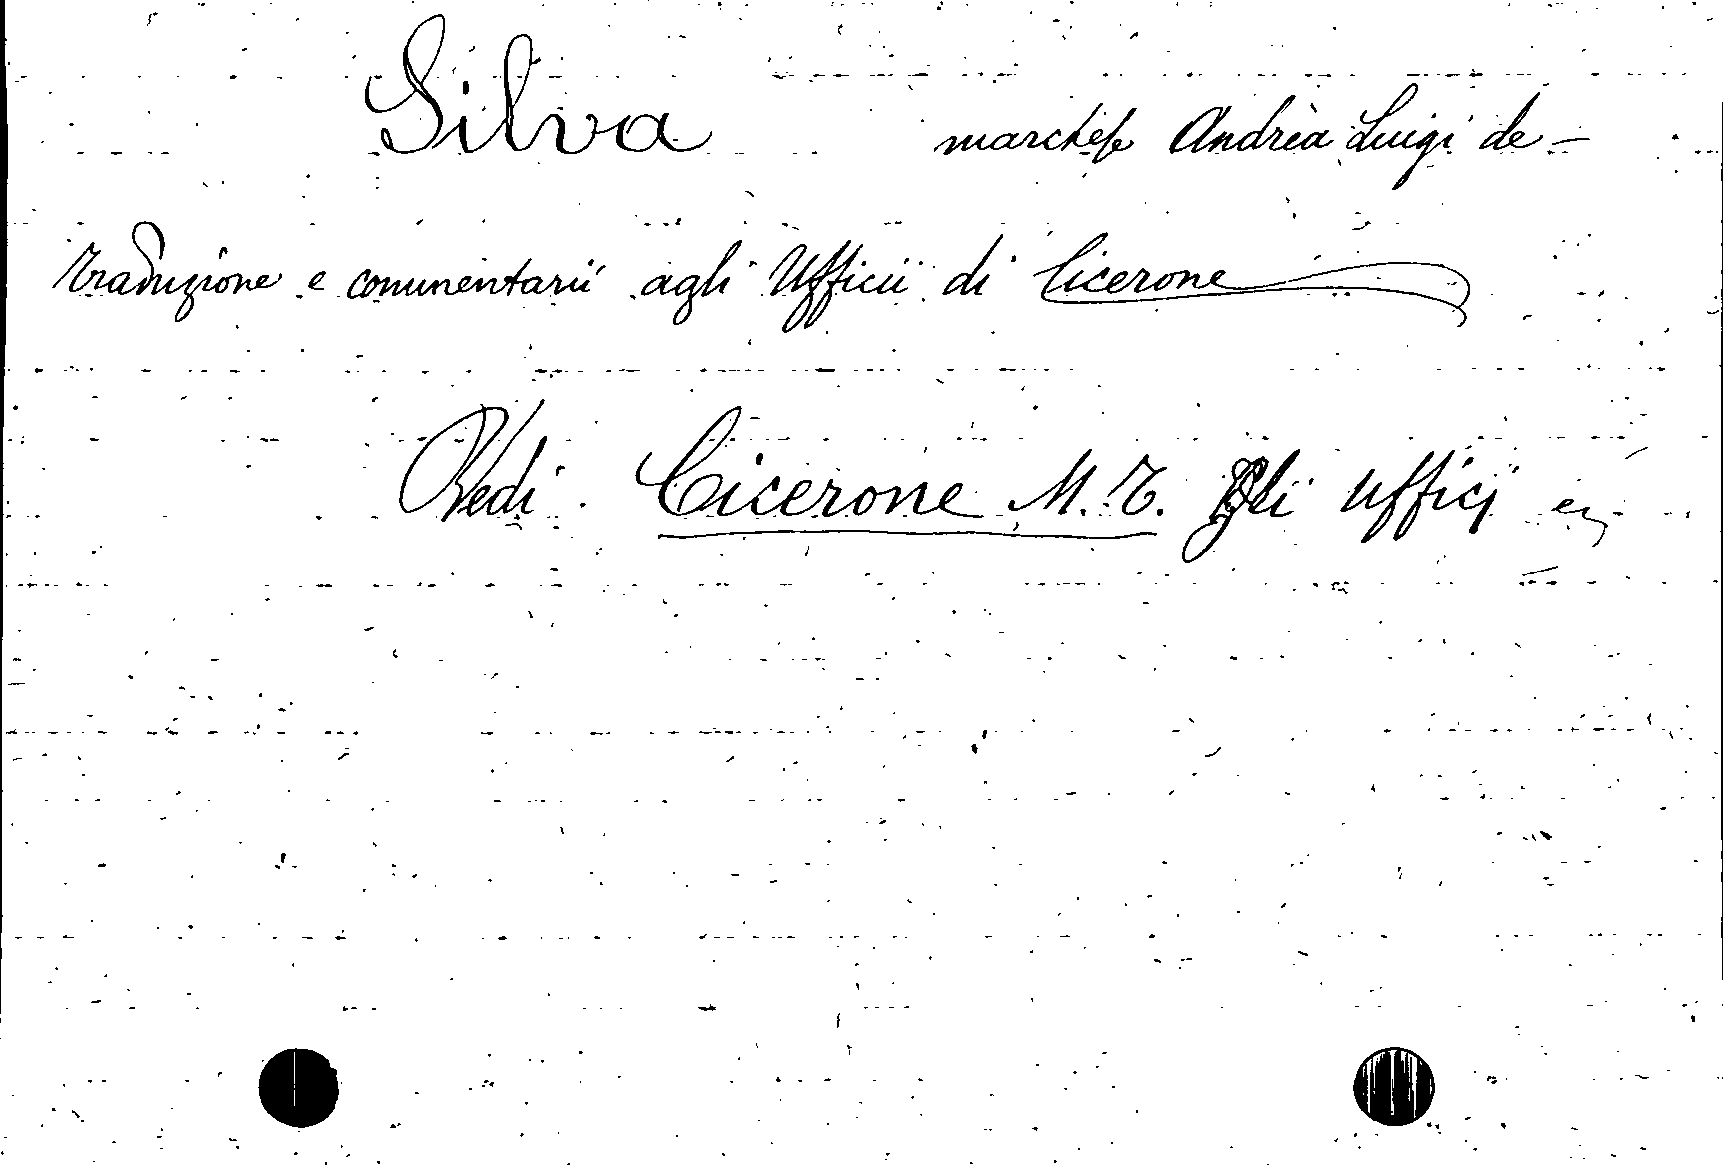 Silva marchese Andrea Luigi de -
traduzione e commentarii agli Ufficii di Cicerone
Vedi Cicerone M. T. Gli Ufficj